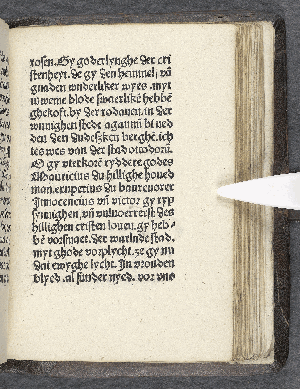 rosen. Gy goderlynghe der cri
stenheyt. de gy den hemmel, vn̄
gnaden wnderliker wyes. myt
iuweme blode swaerlikē hebbē
ghekoft. by der rodanen. in der
wunighen stede agauni beneden
den den dudesken berghē. ich
tes wes van der stad otodorū.
O gy vterkorē ryddere godes
Mauricius du hillighe houed
man. exuperius du baneruorer
Innocencius vn̄ victor gy ryp
synnighen, vn̄ vuluoertest des
hillighen cristen louen. gy heb-
bē vorsmaet. der werlnde stad.
myt ghode vorplycht. ze gy nu
dat ewyghe lycht. In vrouden
blyed. al sunder nyed. vor vns